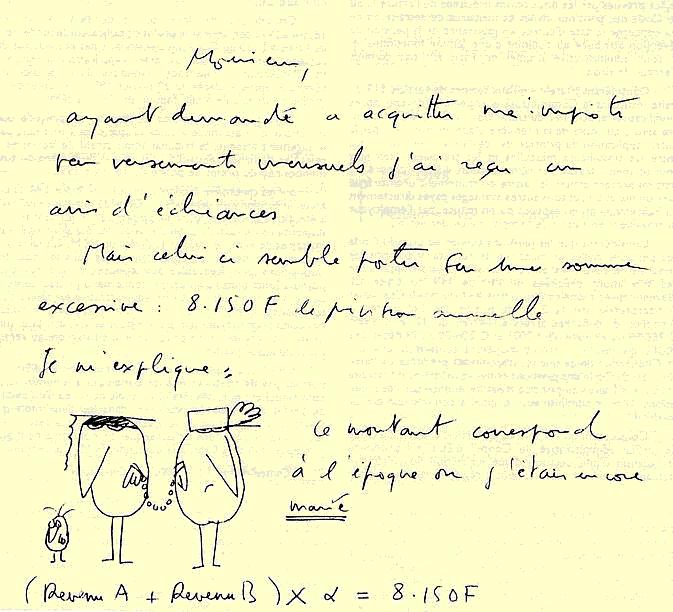 Monsieur,
ayant demandé a acquitter mes impots
par versements mensuels j'ai reçu un
avis d'échéances
Mais celui ci semble porter sur une somme
excessive : 8.150F de prévision annuelle
Je m'explique :
ce montant correspond
à l'époque ou j'étais encore
marié
(Revenu A + Revenu B) X α = 8.150F